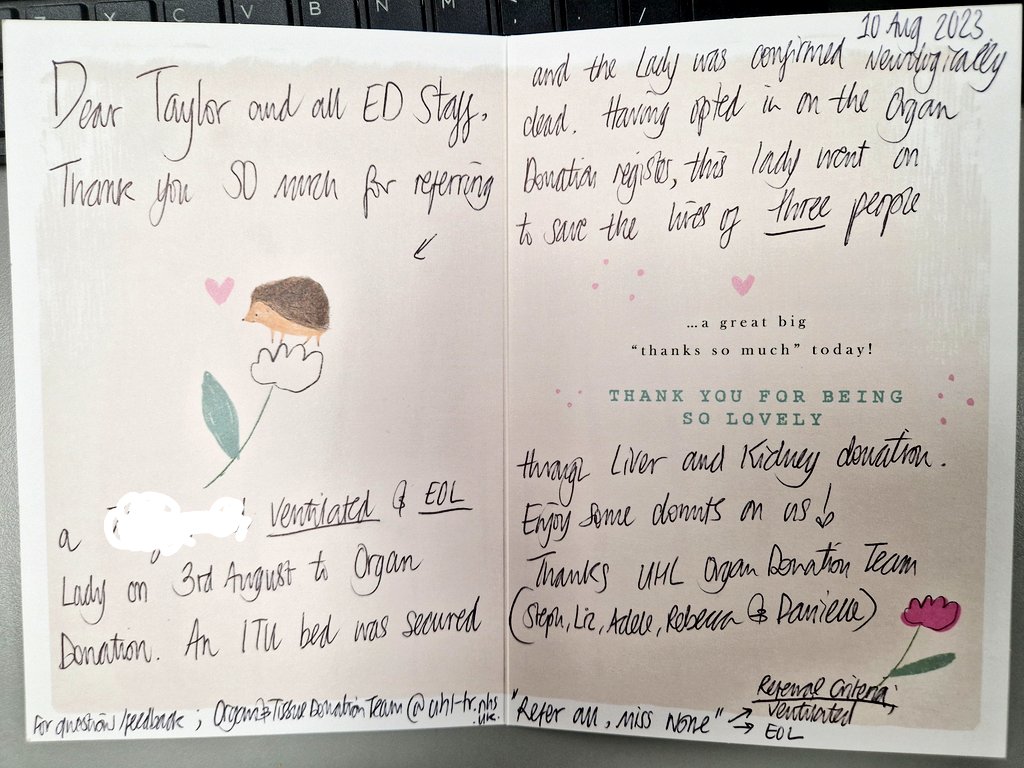 Dear Taylor and all ED Staff,
Thank you SO much for referring
a ventilated & EOL
Lady on 3rd August to Organ
Donation. An ITU bed was secured
For question/feedback ; Organ&TissueDonationTeam@uhl-tr.nhs
.uk.
10 Aug 2023
and the Lady was confirmed Neurologically
dead. Having opted in on the Organ
Donation register, this lady went on
to save the lives of three people
...a great big
“thanks so much” today!
THANK YOU FOR BEING
SO LOVELY
through Liver and Kidney donation.
Enjoy some donuts on us!
Thanks UHL Organ Donation Team
(Steph, Liz, Adele, Rebecca & Danielle)
"Refer all, miss None" → Referral Criteria;
ventilated
→ EOL
C V B N M